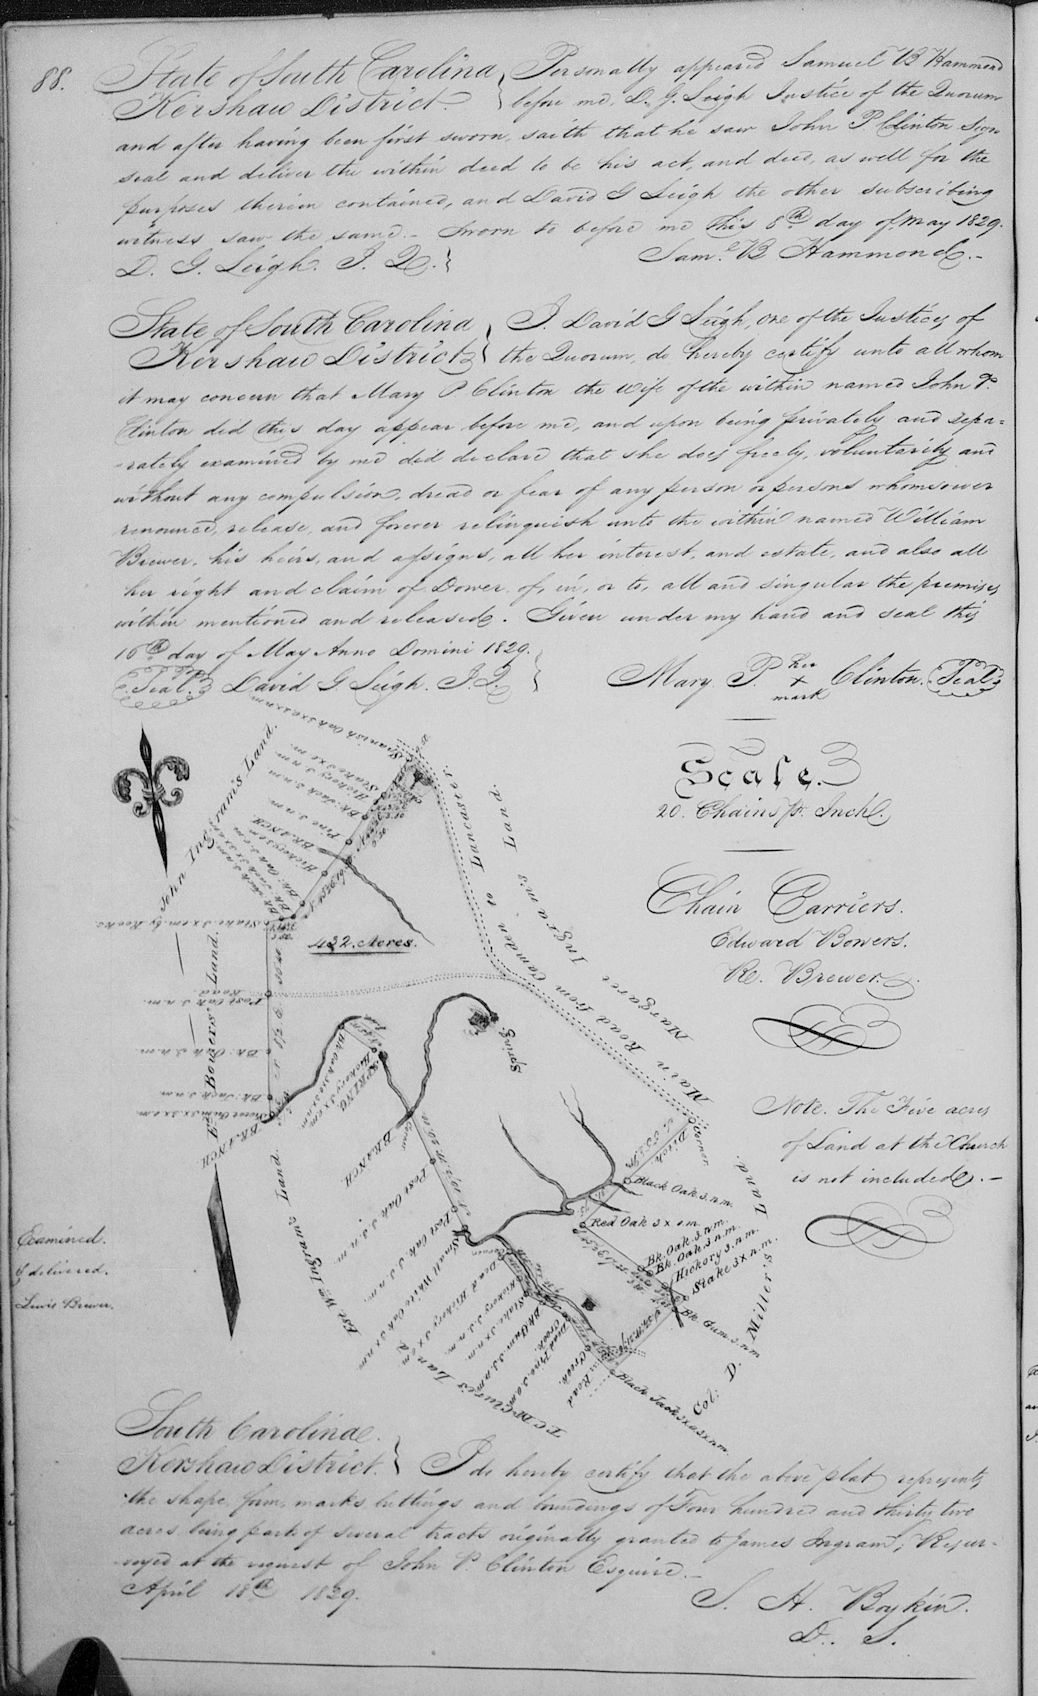 88.
State of South Carolina } Personally appeared Samuel B Hammond
Kershaw District } before me D. G. Leigh Justice of the Quorum
and after having been first sworn, saith that he saw John P Clinton Sign
seal and deliver the within deed to be his act, and deed, as well for the
purposes therein contained, and David G Leigh the other subscribing
witness saw the same. - Sworn to before me this 8th day of May 1829.
D. G. Leigh. J. Q. } Saml. B Hammond. -
State of South Carolina } I. David G Leigh, one of the Justices of
Kershaw District } the Quorum, do hereby certify unto all whom
it may concern that Mary P Clinton the wife of the within named John P.
Clinton did this day appear before me, and upon being privately and sepa=
rately examined by me did declare that she does freely, voluntarily and
without any compulsion, dread or fear of any person or persons whomsoever
renounce, release, and forever relinquish unto the within named William
Brewer, his heirs, and assigns, all her interest, and estate, and also all
her right and claim of Dower, of, in, or to, all and singular the premises
within mentioned and released. Given under my hand and seal this
16th day of May Anno Domini 1829.
Seal. David G. Leigh. J. Q. } Mary P. her x mark Clinton. Seal
Scale.
20. Chains pr. Inch.
Chain Carriers.
Edward Bowers.
R. Brewer.
Note. The Five acres
of Land at the Church
is not included. -
John Ingram's Land.
Spanish Oak
Stake 3 x n m.
Hickory 3 n m.
Bk: Jack 3 n m
Pine 3 n m.
BRANCH
Hickory 3 n m
Stake 3 x n m. by Rocks.
Main Road from Camden to Lancaster.
Margaret Ingram's Land.
432. Acres.
Bowers' Land.
Road
Post Oak 3 n m.
Bk: Oak 3 n m.
Bk: Jack 3 n m.
Sweet Gum 3 x n m.
BRANCH
SPRING
BRANCH
Spring
Est. Wm Ingram's Land.
Post Oak 3 n m.
Post Oak 3 n m.
Small White Oak 3 x n m
Dead Hickory 3 x n m
Hickory 3 n m.
Stake 3 x n m.
Bk Gum 3 n m
Creek.
Dead Pine 3 n m
Creek.
Road
T. C. McClure's Land
Ditch
Black Oak 3. n m.
Red Oak 3 x n m.
Bk. Oak 3. n m.
Bk. Oak 3. n m.
Hickory 3. n m.
Stake 3 x n m.
Bk. Gum. 3. n m
Black Jack 3 x n m
Col: D. Miller's Land.
Examined.
& delivered.
Lewis Brewer.
South Carolina.
Kershaw District. } I do hereby certify that the above plat represents
the shape, form, marks buttings and boundings of Four hundred and thirty two
acres being part of several tracts originally granted to James Ingram; Resur-
veyed at the request of John P. Clinton Esquire. -
April 18th 1829.
S. H. Boykin.
D. S.